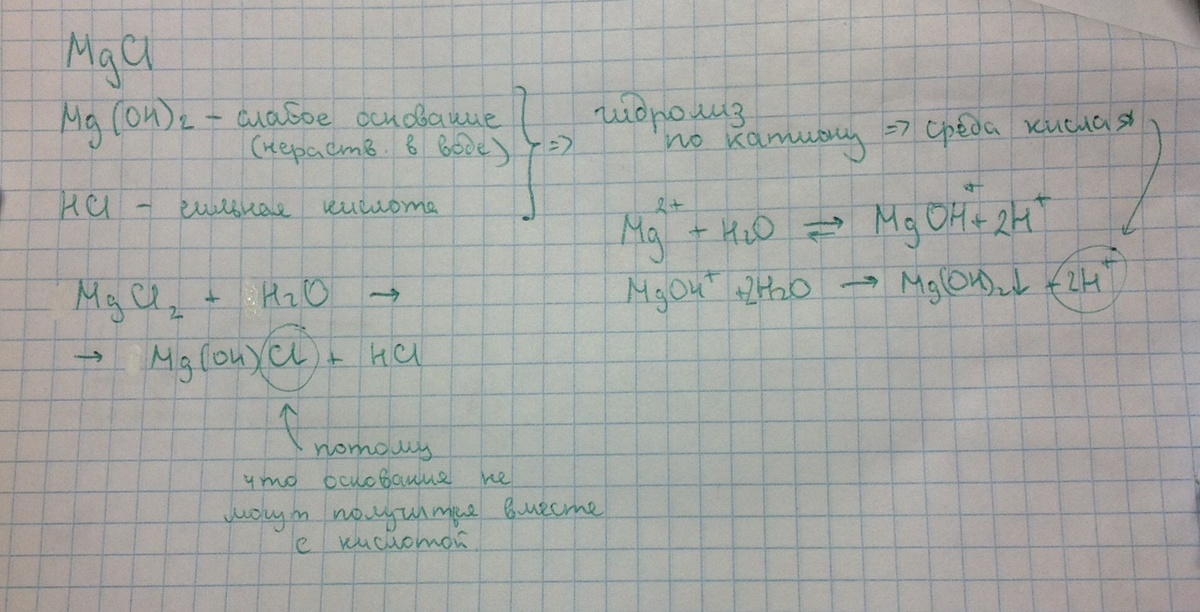 MgCl
Mg(OH)2 – слабое основание
(нераств. в воде)
HCl – сильная кислота
} =>
гидролиз
по катиону => среда кислая
Mg2+ + H2O ⇌ MgOH+ + 2H+
MgOH+ + 2H2O → Mg(OH)2↓ + 2H+
MgCl2 + H2O →
→ Mg(OH)Cl + HCl
потому
что основания не
могут получится вместе
с кислотой.